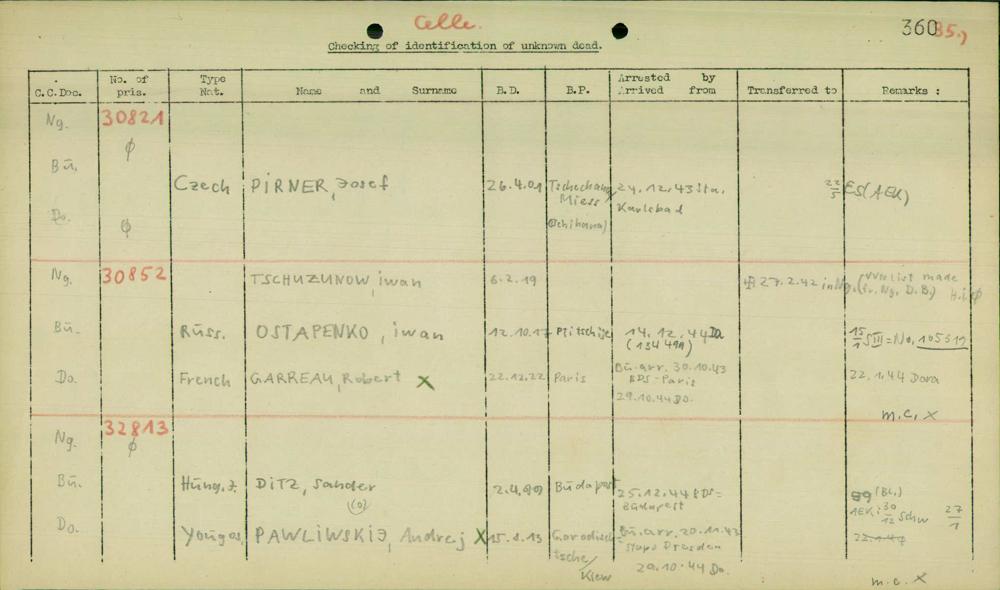 Celle.
360 35.)
Checking of identification of unknown dead.
C.C.Doc. No. of pris. Type Nat. Name and Surname B.D. B.P. Arrested by Arrived from Transferred to Remarks :
Ng. 30821
ø
Bü.
Czech PIRNER, Josef 26.4.01 Tschechang/ Miess 24.12.43 Sta. Karlsbad 22/5 ES(AEK)
Do. ø
Ng. 30852 TSCHUZUNOW, iwan 6.2.19 27.2.42 in Ng. list made fr. Ng. D.B.)
Bü. Russ. OSTAPENKO, iwan 12.10.17 14.12.44 Da 15/1 SIII = No. 105519
Do. French GARREAU, Robert X 22.12.22 Paris Bü. arr. 30.10.43 BDS-Paris 22.1.44 Dora
29.10.44 Do.
m.c. X
Ng. 32813
ø
Bü. Hung. J. DITZ, Sander Budapest 25.12.44 BDS= Budapest (Bu.)
(o)
Do. Yougos. PAWLIWSKIJ, Andrej X 15.8.13 Gorodisch- tsche/ Kiew Bü. arr. 20.11.43 Stapo Dresden 27/1
29.10.44 Do.
m.c. X